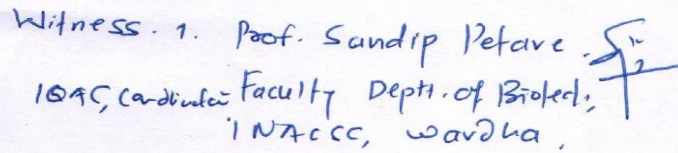 Witness. 1. Prof. Sandip Petare.
IQAC, Cordinator Faculty Deptt. of Biotech;
INACSC, Wardha,